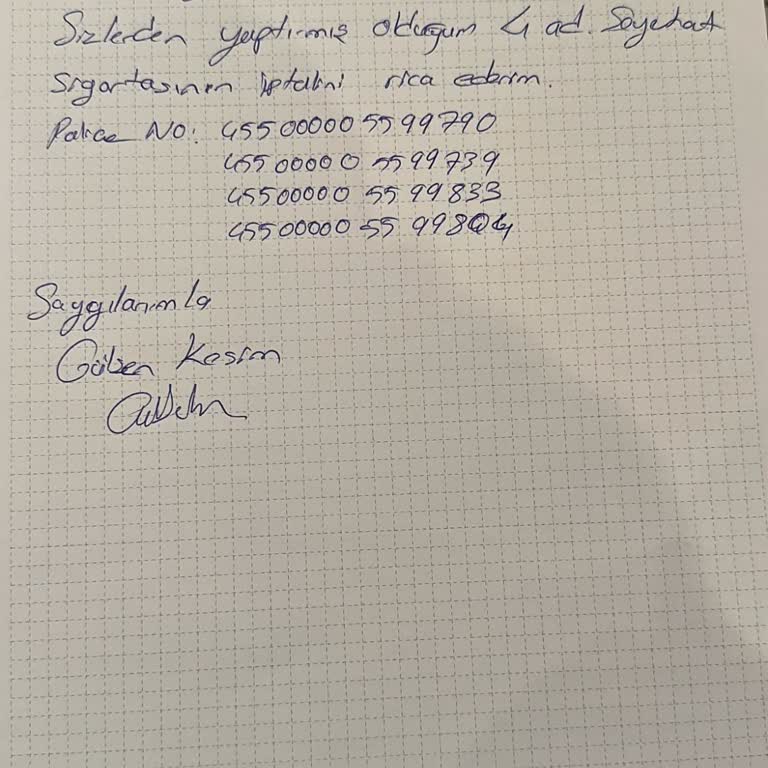 Sizlerden yaptırmış olduğum 4 ad. Seyehat
Sigortasının iptalini rica ederim.
Police No: 45500000 5599790
45500000 5599739
45500000 55 99833
45500000 55 99804
Saygılarımla
Gülben Kesim